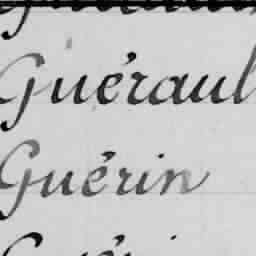 Guéraul
Guérin